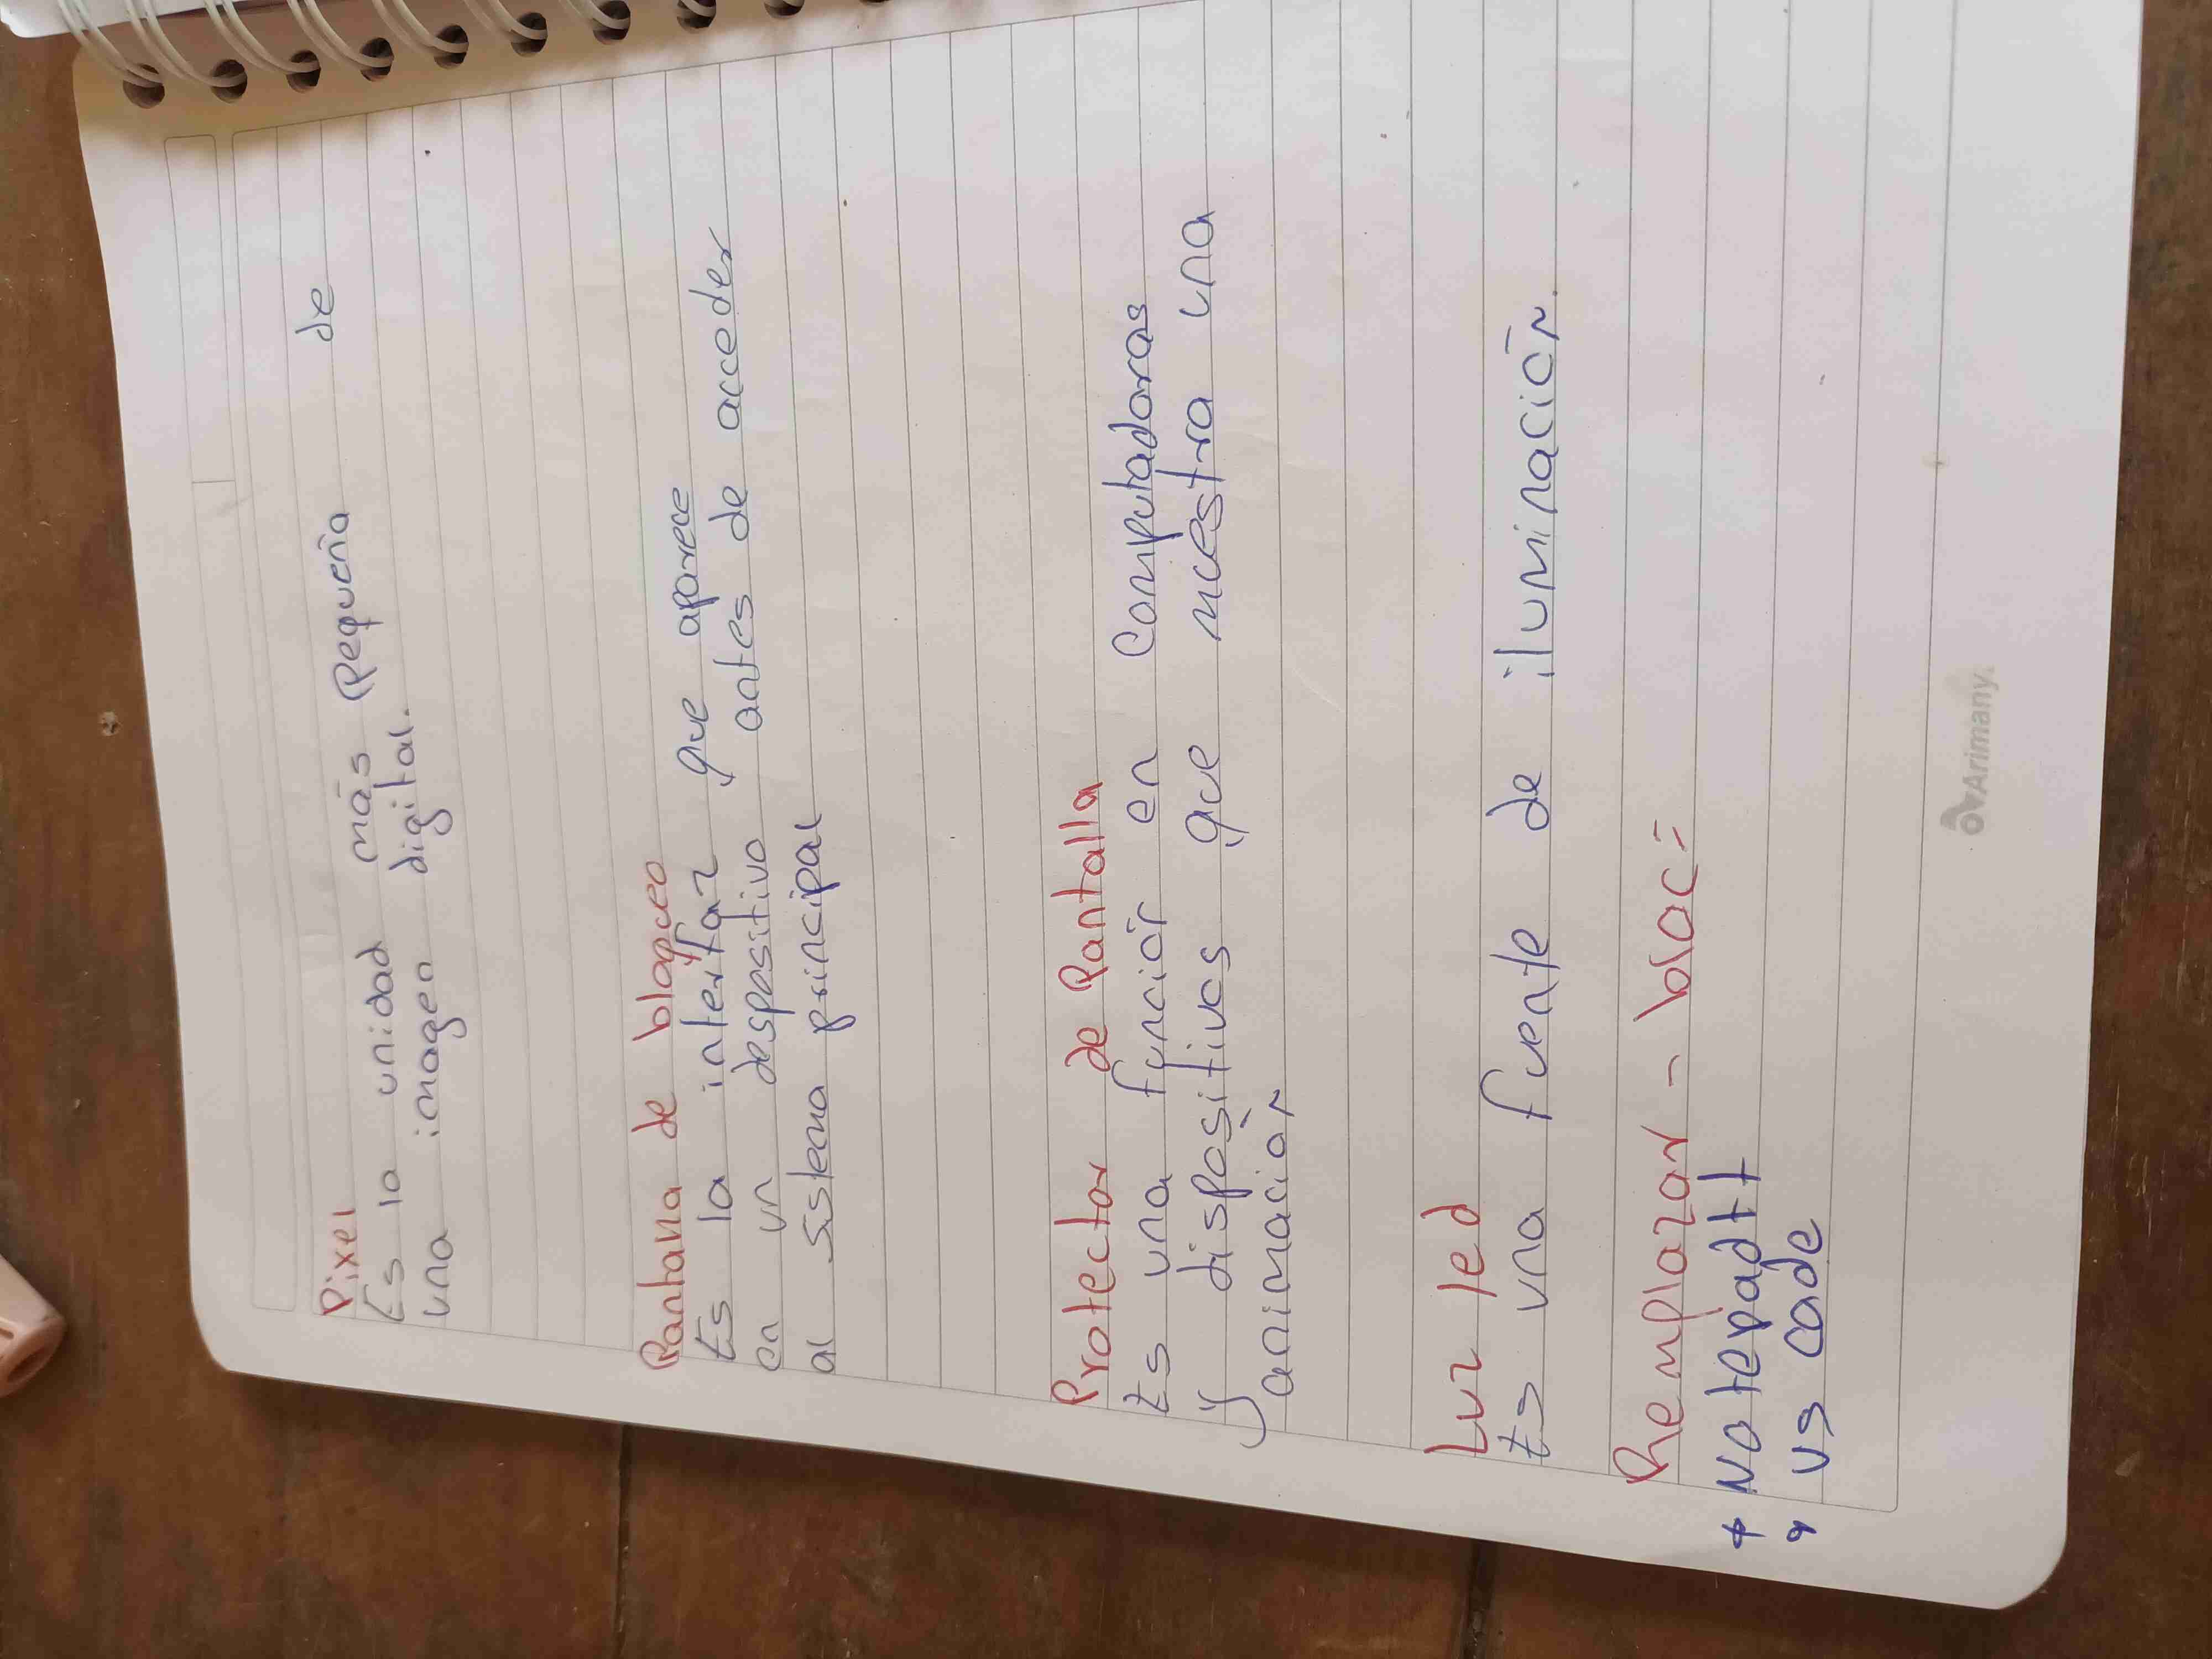 Pixel
Es la unidad más Pequeña de
una imagen digital.
Pantalla de bloqueo
Es la interfaz que aparece
en un despositivo antes de acceder
al sistema principal
Protector de Pantalla
Es una función en Computadoras
y dispositivos que muestra una
animación
Luz led
Es una fuente de iluminación.
Remplazar - bloc=
* Notepad++
* VS code
Arimany